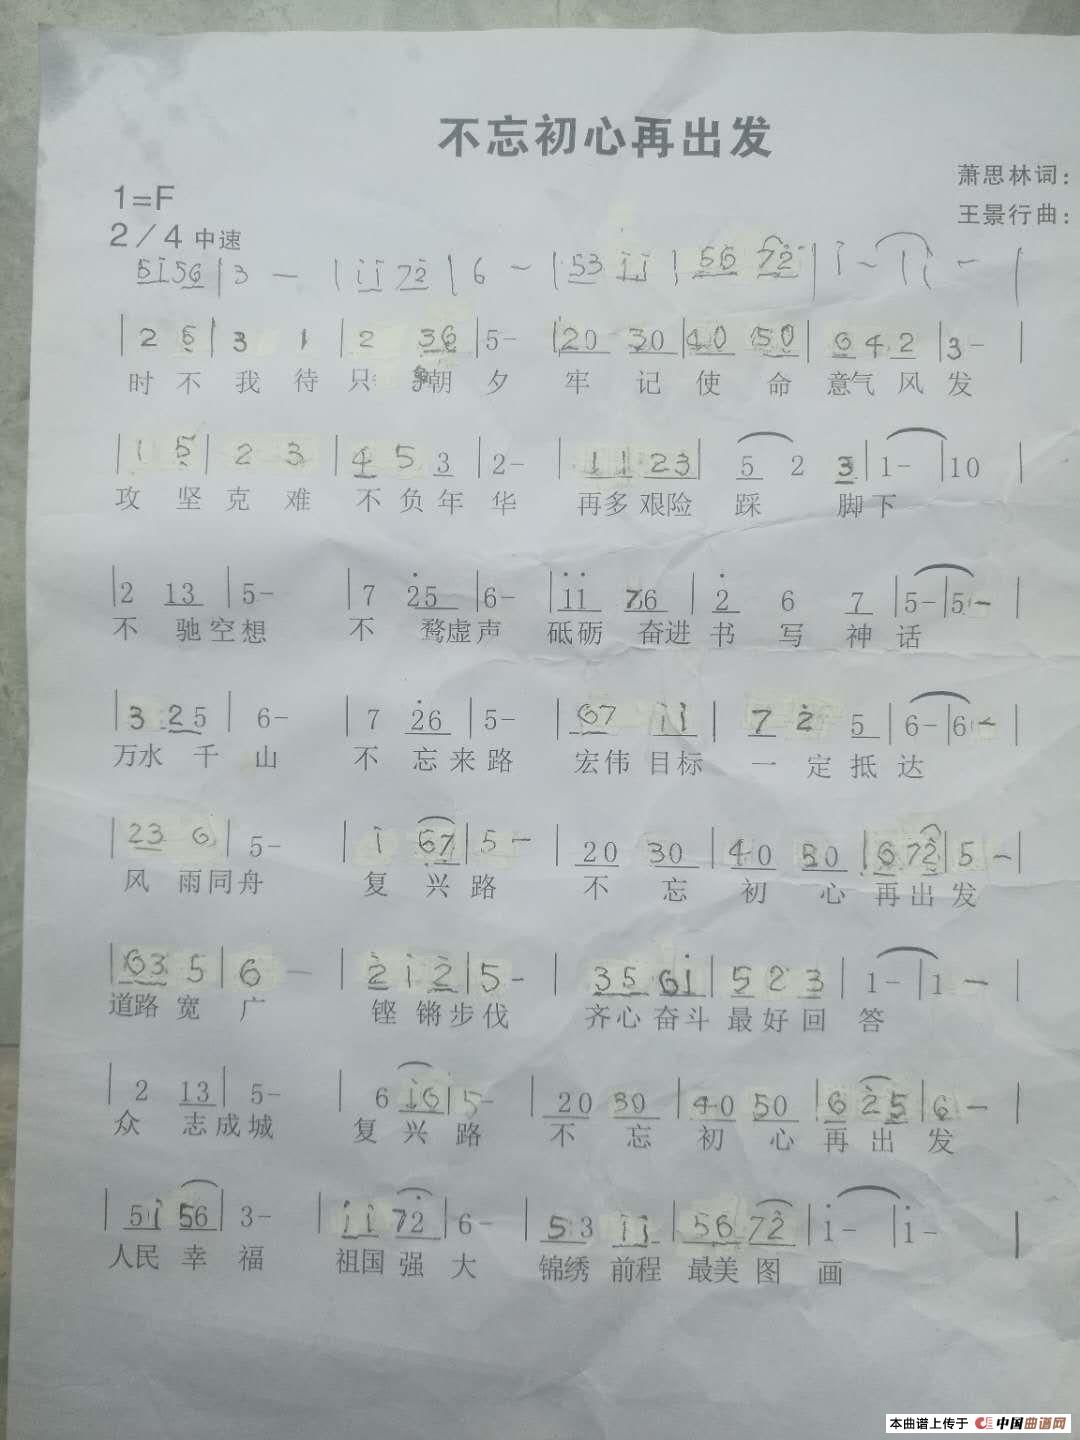 不忘初心再出发
萧思林词：
1=F
王景行曲：
2/4 中速
5i56 | 3 — | ii 72 | 6 — | 53 ii | 56 72 | i — | i — |
| 2 5 | 3 1 | 2 36 | 5- | 20 30 | 40 50 | 6 4 2 | 3- |
时 不 我 待 只争朝 夕 牢 记 使 命 意气 风 发
| 1 5 | 2 3 | 4 5 3 | 2- | 11 23 | 5 2 3 | 1- | 10 |
攻 坚 克 难 不 负 年 华 再多 艰险 踩 脚 下
| 2 13 | 5- | 7 25 | 6- | ii 76 | 2 6 7 | 5- | 5- |
不 驰空想 不 骛虚声 砥砺 奋进 书 写 神 话
| 3 25 | 6- | 7 26 | 5- | 67 ii | 7 2 5 | 6- | 6- |
万水 千 山 不 忘来路 宏伟 目标 一 定 抵 达
| 23 6 | 5- | i 67 | 5 — | 20 30 | 40 50 | 6 72 | 5 — |
风 雨同舟 复 兴 路 不 忘 初 心 再 出 发
| 63 5 | 6 — | 2 i 2 | 5 - | 35 6i | 5 2 3 | 1- | 1 — |
道路 宽 广 铿 锵步伐 齐心 奋斗 最好回 答
| 2 13 | 5- | 6 i6 | 5- | 20 30 | 40 50 | 6 25 | 6 — |
众 志成城 复 兴 路 不 忘 初 心 再 出 发
| 5i 56 | 3- | ii 72 | 6- | 53 ii | 56 72 | i- | i- |
人民 幸 福 祖国 强 大 锦绣 前程 最美 图 画
本曲谱上传于 中国曲谱网